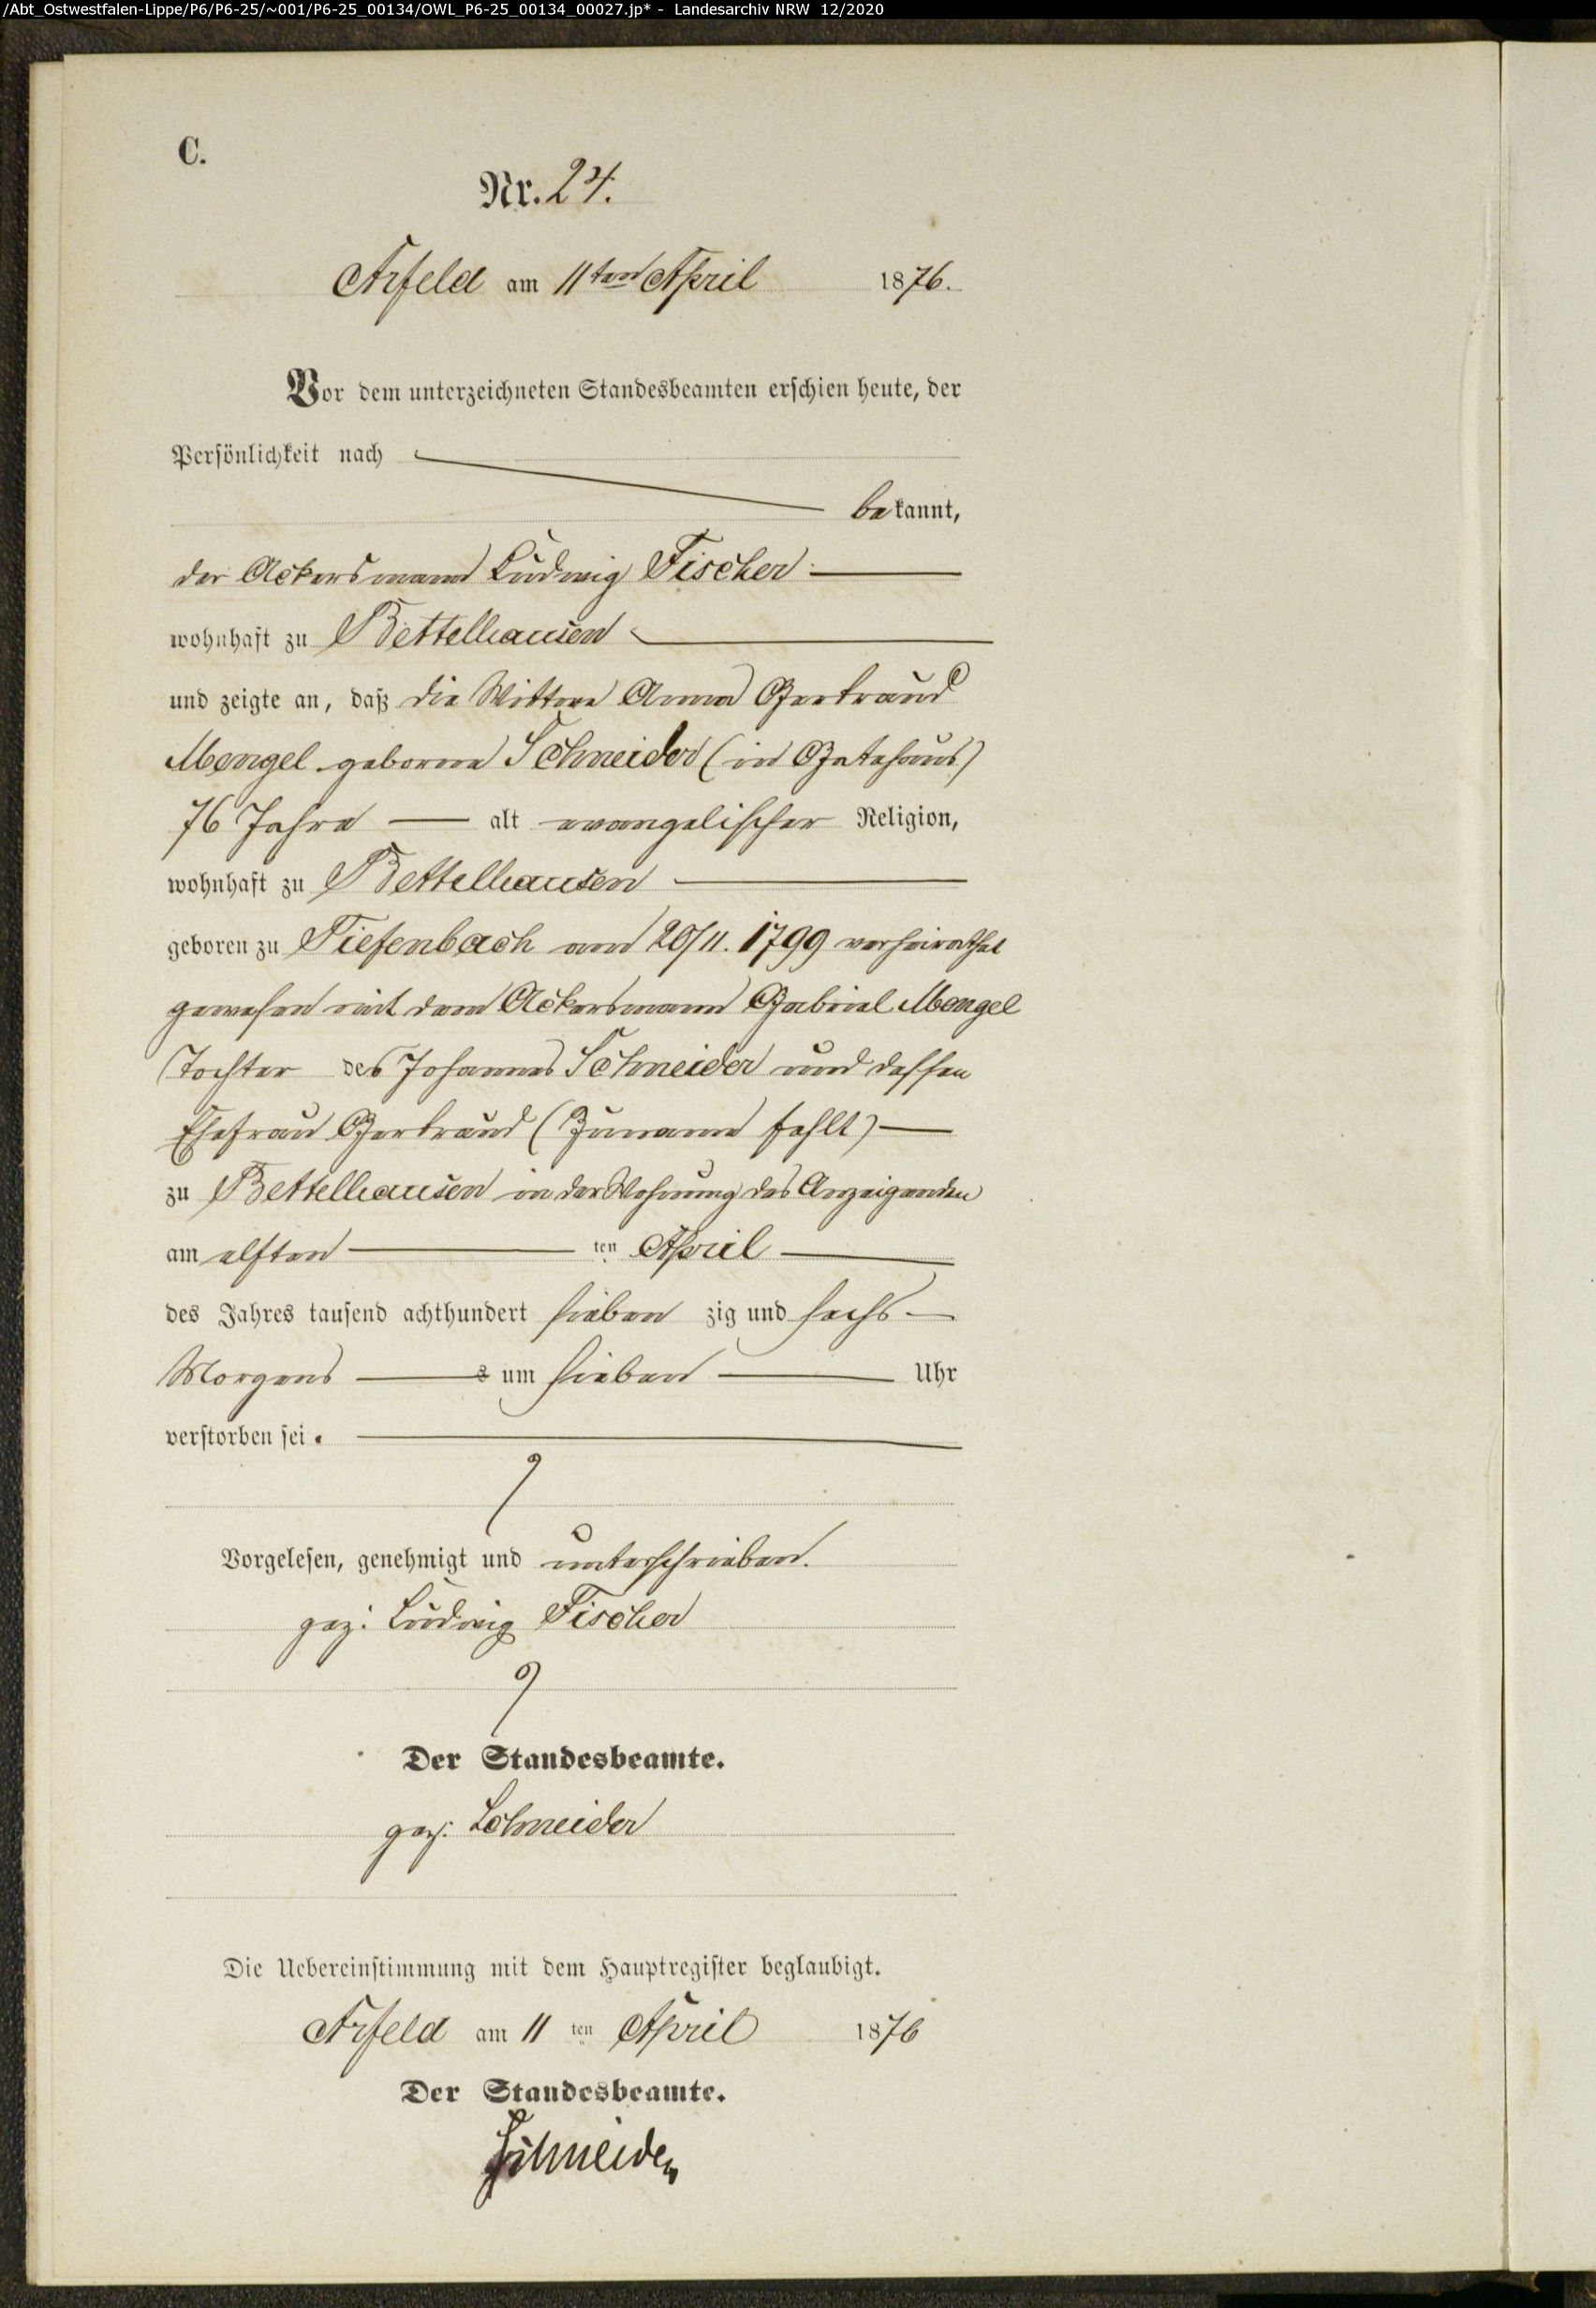 /Abt_Ostwestfalen-Lippe/P6/P6-25/~001/P6-25_00134/OWL_P6-25_00134_00027.jp* - Landesarchiv NRW 12/2020
C.
Nr. 24.
Arfeld am 11ten April 1876.
Vor dem unterzeichneten Standesbeamten erschien heute, der
Persönlichkeit nach
bekannt,
der Ackersmann Ludwig Fischer
wohnhaft zu Bettelhausen
und zeigte an, daß die Wittwe Anna Gertraud
Mengel geborene Schneider (in Gatehaus)
76 Jahre alt evangelischer Religion,
wohnhaft zu Bettelhausen
geboren zu Tiefenbach am 20/11. 1799 verheirathet
gewesen mit dem Ackersmann Gabriel Mengel
Tochter des Johannes Schneider und dessen
Ehefrau Gertraud (Zuname fehlt)
zu Bettelhausen in der Wohnung des Anzeigenden
am elften ten April
des Jahres tausend achthundert sieben zig und sechs
Morgens s um sieben Uhr
verstorben sei.
Vorgelesen, genehmigt und unterschrieben.
gez: Ludwig Fischer
Der Standesbeamte.
gez: Schneider
Die Uebereinstimmung mit dem Hauptregister beglaubigt.
Arfeld am 11 ten April 1876
Der Standesbeamte.
Schneider